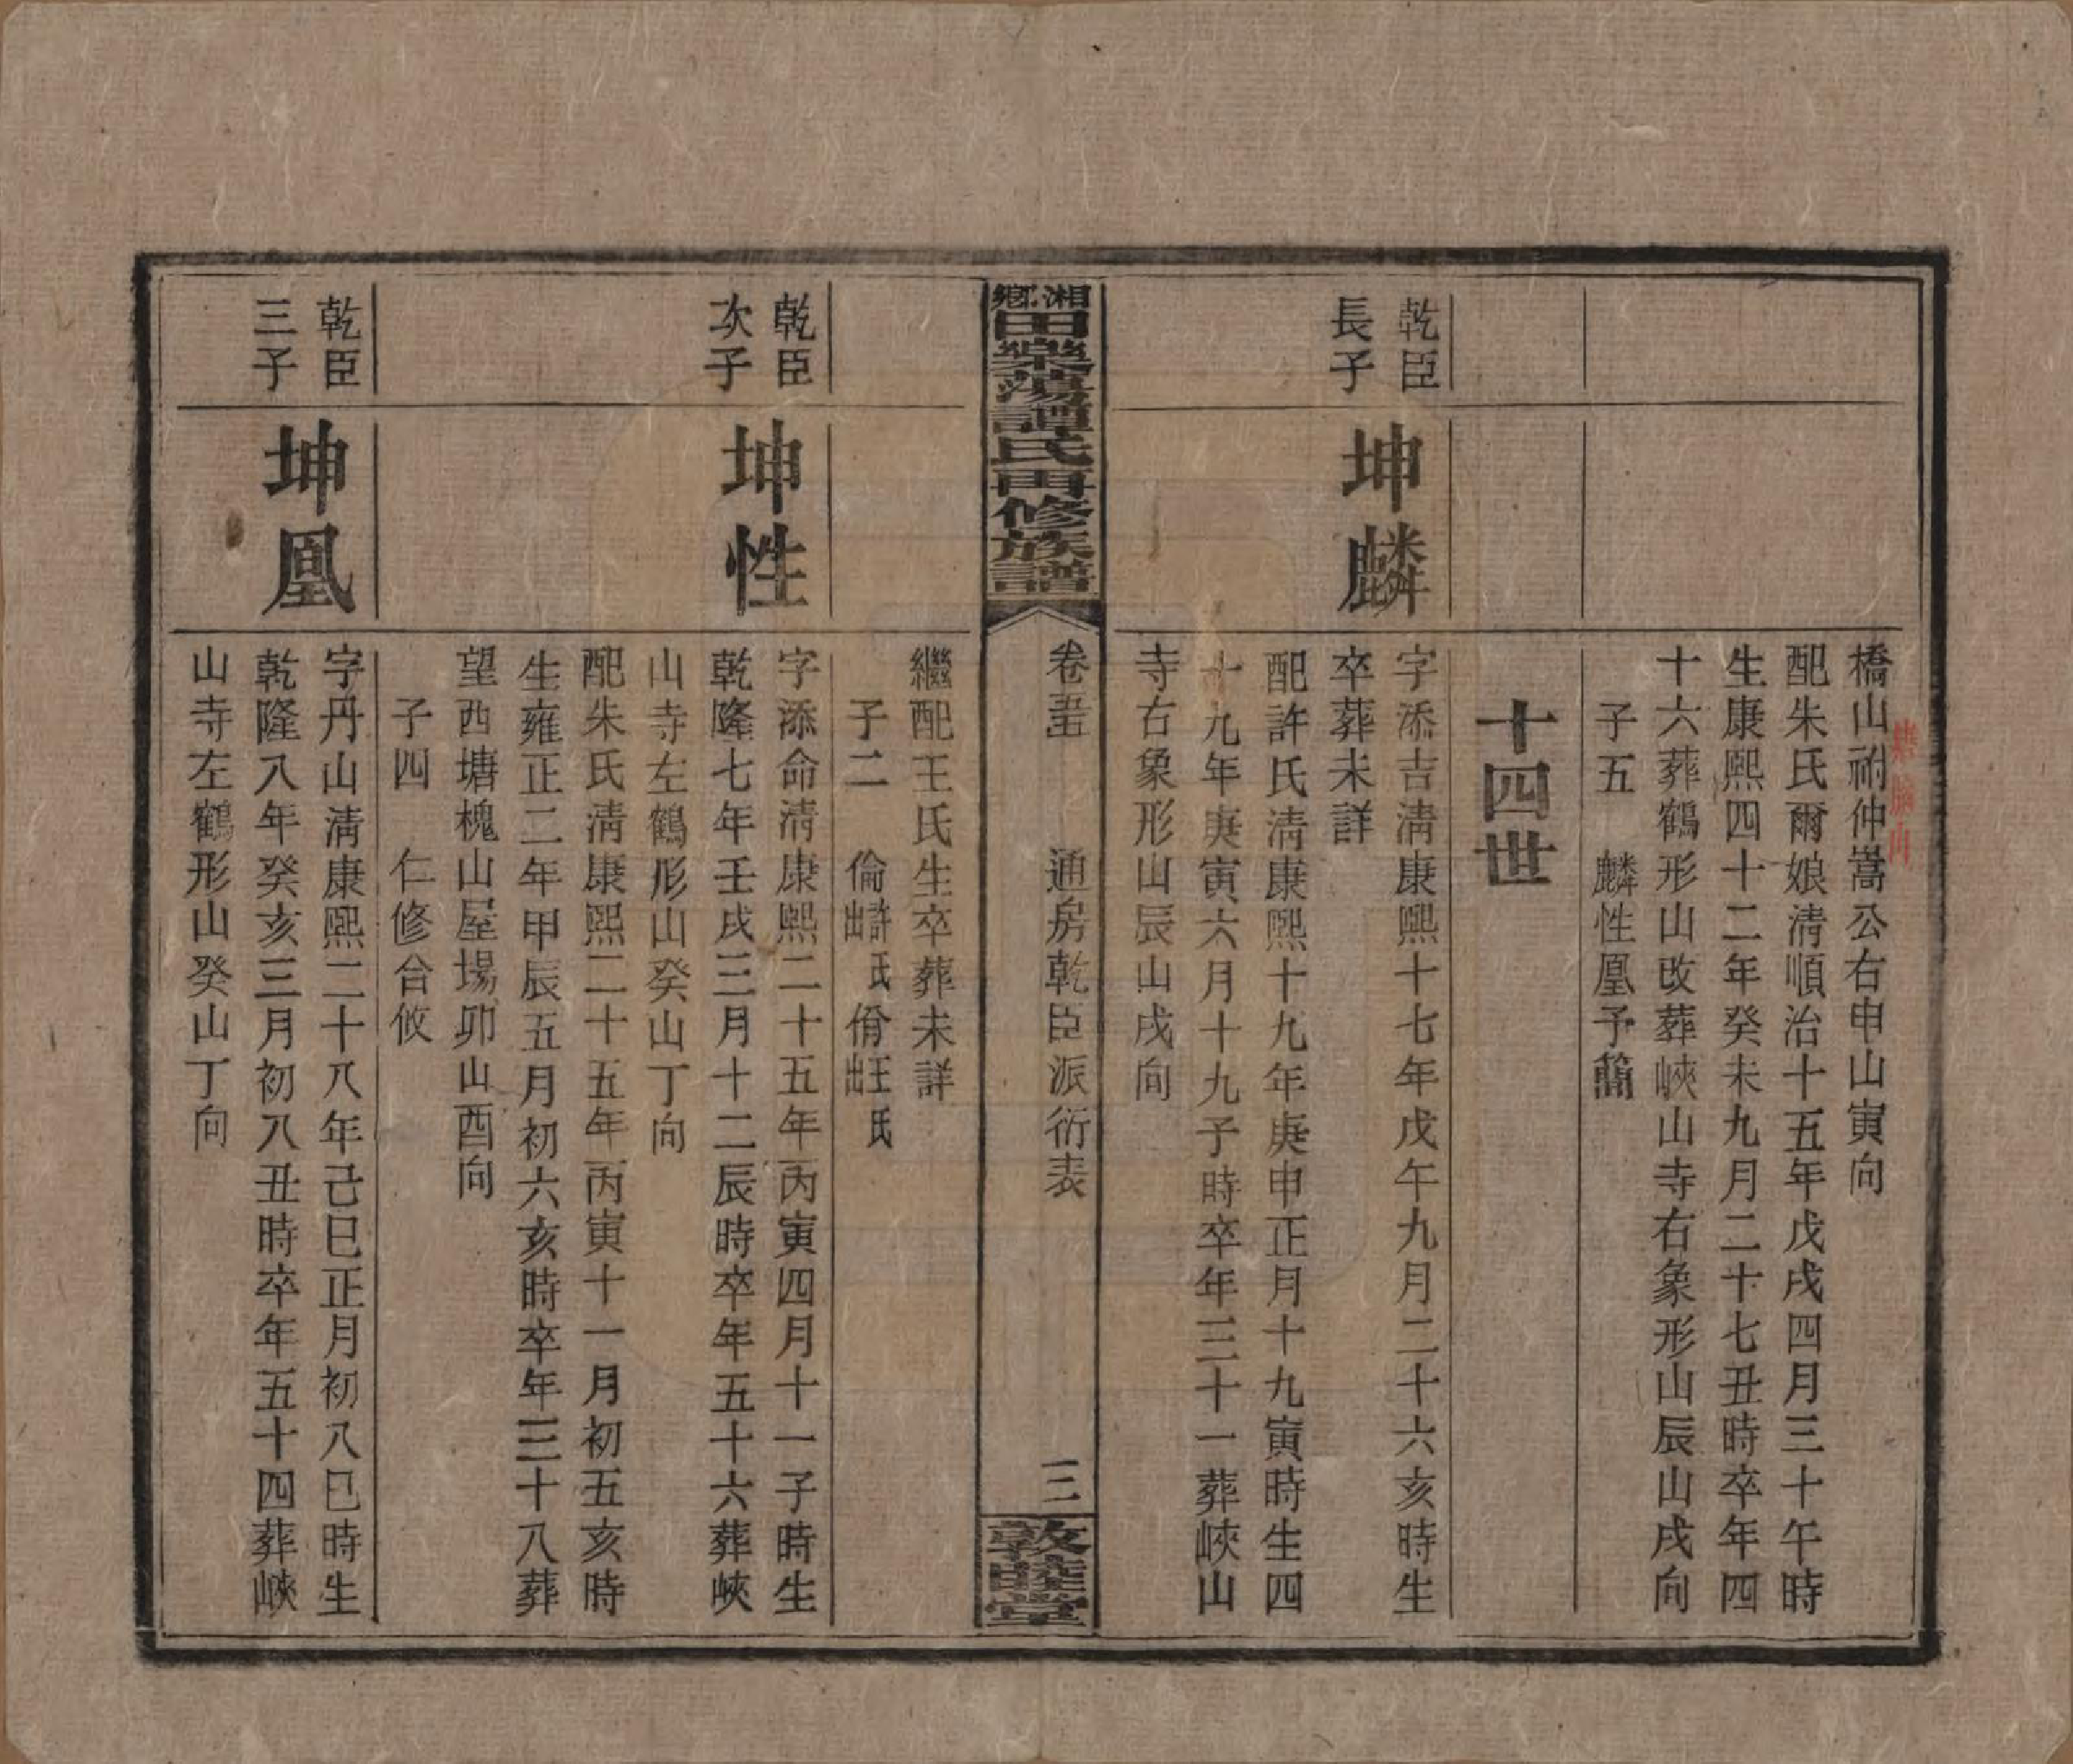 橋山祔仲嵩公右申山寅向
配朱氏爾娘清順治十五年戊戌四月三十午時
生康熙四十二年癸未九月二十七丑時卒年四
十六葬鶴形山改葬峽山寺右象形山辰山戌向
子五 麟性凰予簡
十四世
乾臣
長子
坤麟
字添吉清康熙十七年戊午九月二十六亥時生
卒葬未詳
配許氏清康熙十九年庚申正月十九寅時生四
十九年庚寅六月十九子時卒年三十一葬峽山
寺右象形山辰山戌向
湘鄉田柴蕩譚氏再修族譜
卷五
通房乾臣派衍表
三
敦睦堂
繼配王氏生卒葬未詳
子二 倫許氏出 脩王氏出
乾臣
次子
坤性
字添命清康熙二十五年丙寅四月十一子時生
乾隆七年壬戌三月十二辰時卒年五十六葬峽
山寺左鶴形山癸山丁向
配朱氏清康熙二十五年丙寅十一月初五亥時
生雍正二年甲辰五月初六亥時卒年三十八葬
望西塘槐山屋場卯山酉向
子四 仁修合攸
乾臣
三子
坤凰
字丹山清康熙二十八年己巳正月初八巳時生
乾隆八年癸亥三月初八丑時卒年五十四葬峽
山寺左鶴形山癸山丁向